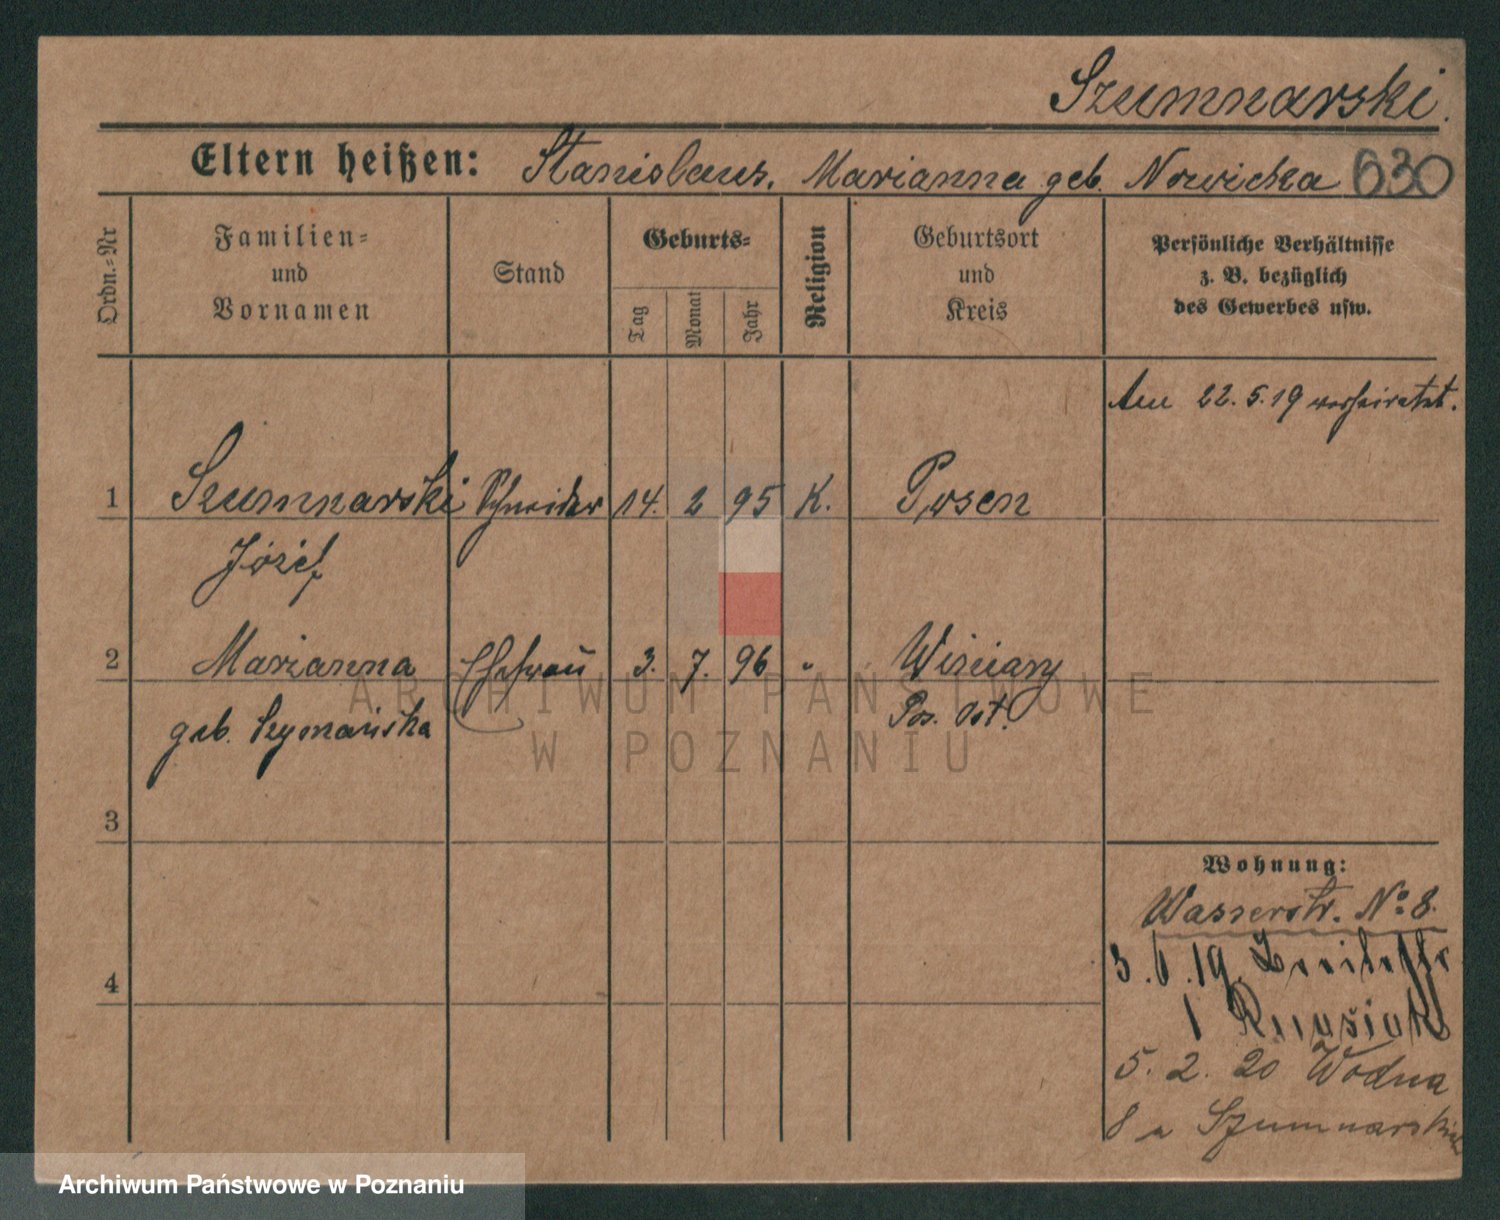 Szumnarski.
Eltern heißen: Stanislaus, Marianna geb. Nowicka 630
Ordn.=Nr
Familien=
und
Vornamen
Stand
Geburts=
Tag
Monat
Jahr
Religion
Geburtsort
und
Kreis
Persönliche Verhältnisse
z. B. bezüglich
des Gewerbes usw.
Am 22.5.19 verheiratet.
1 Szumnarski Schneider 14. 2 95 K. Posen
Józef
2 Marianna Ehefrau 3. 7. 96 " 
geb. Szymańska Pos. Ost.
3
4
Wohnung:
Wasserstr. No. 8.
3.6.19. Breitestr
1
5. 2. 20 Wodna
8 a
ARCHIWUM PAŃSTWOWE
W POZNANIU
Archiwum Państwowe w Poznaniu